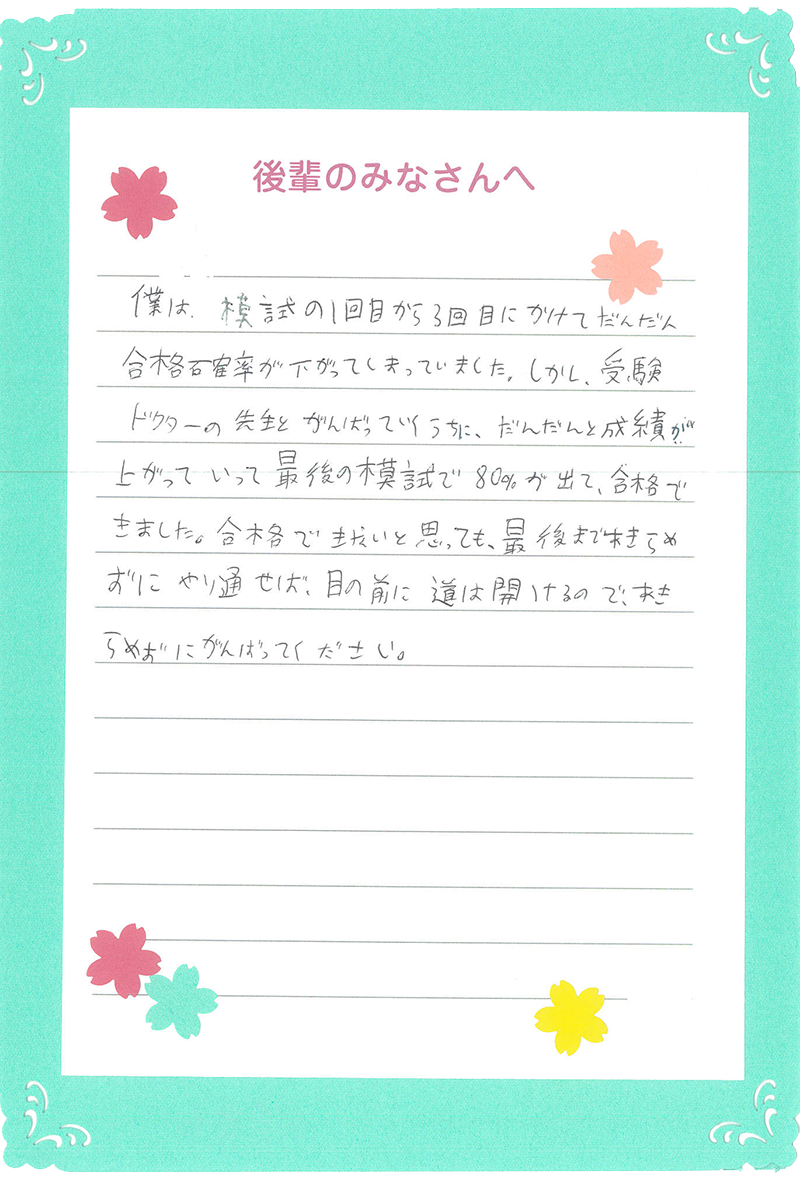 後輩のみなさんへ
僕は、模試の1回目から3回目にかけてだんだん
合格確率が下がってしまっていました。しかし、受験
ドクターの先生とがんばっていくうちに、だんだんと成績が
上がっていって最後の模試で80%が出て、合格で
きました。合格できないと思っても、最後まであきらめ
ずにやり通せば、目の前に道は開けるので、あき
らめずにがんばってください。